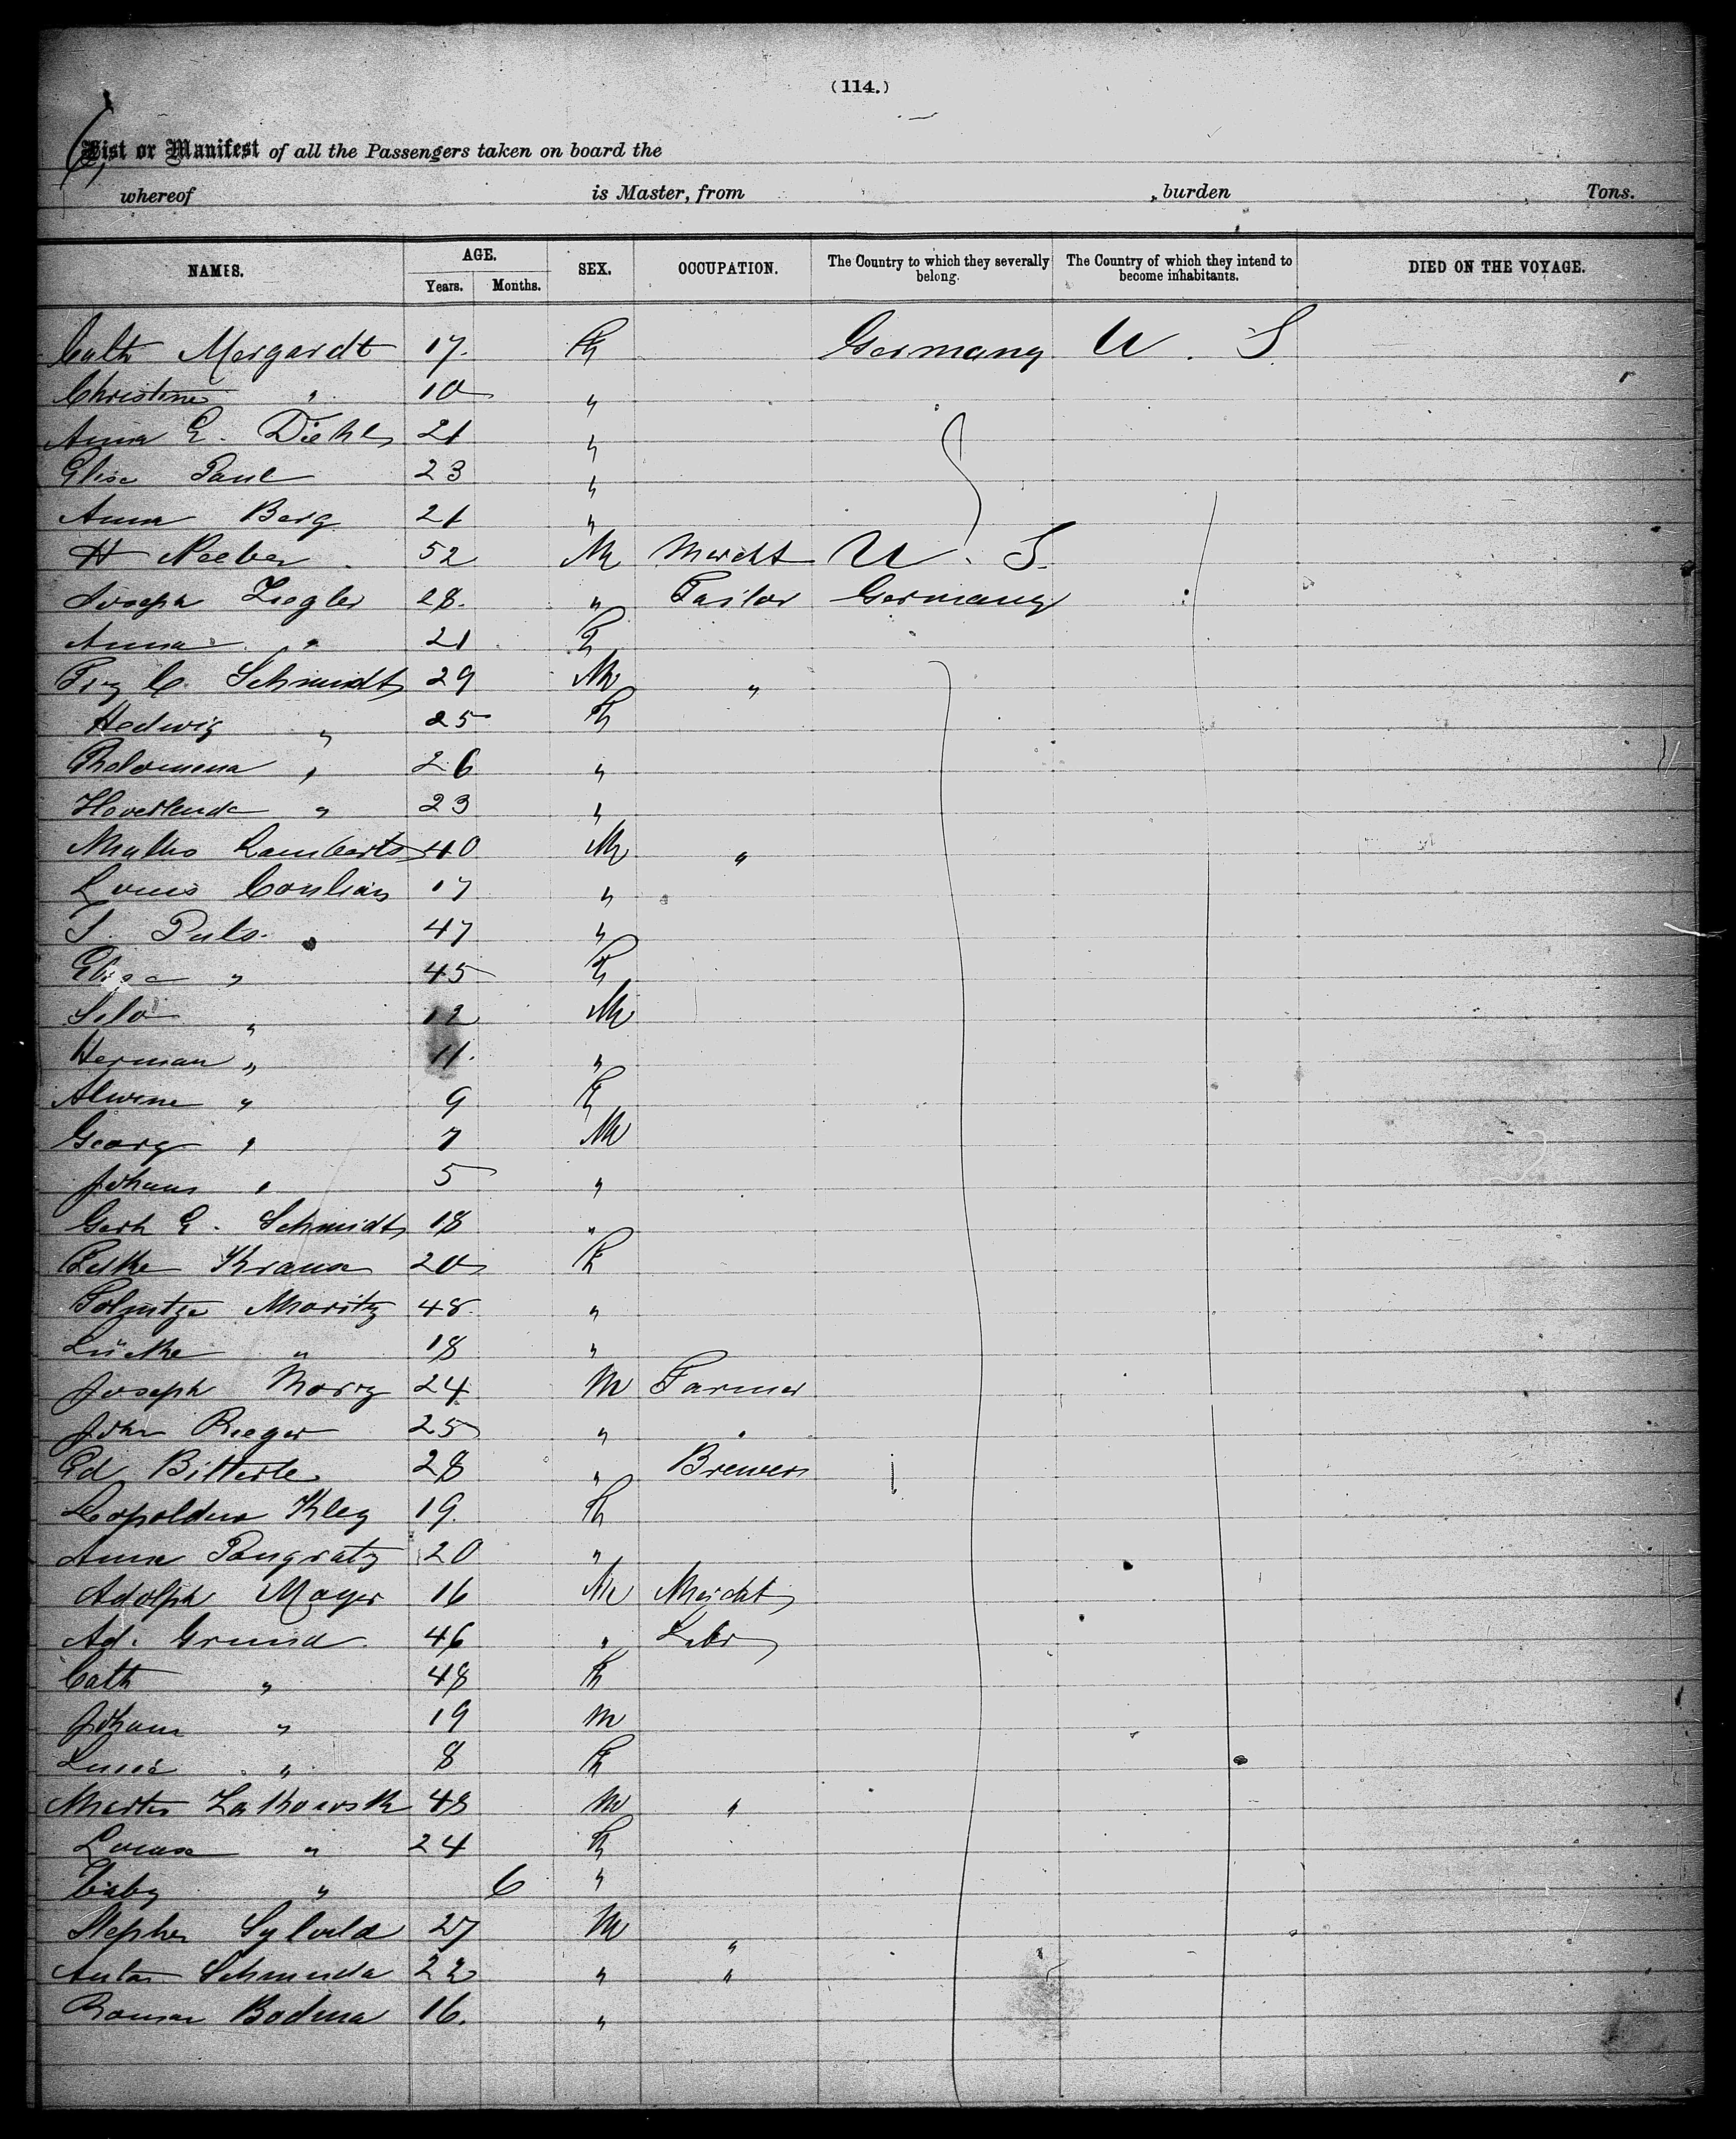 (114.)
6,
List or Manifest of all the Passengers taken on board the
whereof is Master, from , burden Tons.
NAMES. AGE. Years. Months. SEX. OCCUPATION. The Country to which they severally belong. The Country of which they intend to become inhabitants. DIED ON THE VOYAGE.
Cath Mergardt 17. F Germany U. S
Christine " 10 "
Anna E. Diehl 21 "
Elise Paul 23 "
Anna Berg 21 "
H Neeber 52 M Mercht U. S.
Joseph Ziegler 28. " Tailor Germany
Anna " 21 F
C. Schmidt 29 M "
Hedwig " 25 F
Philomena " 26 "
" 23 "
Lamberts 40 M "
Louis 17 "
J. Puls 47 "
Elise " 45 F
" 12 M
Herman " 11. "
Alwine " 9 F
Georg " 7 M
Johann " 5 "
Gerh E. Schmidt 18 "
Krause 20 F
Moritz 48. "
Lücke " 18 "
Joseph 24 M Farmer
John Rieger 25 " "
Ed Bitterle 28 " Brewer
Kley 19. F
Anna Pongratz 20 "
Adolph Mayer 16 M Mercht
Ad. Grund 46 " Labr
Cath " 48 F
Johann " 19 M
" 8 F
48 M "
Louisa " 24 F
Baby " 6 "
Stephen 27 M "
Anton 22 " "
Roman Bodma 16. "